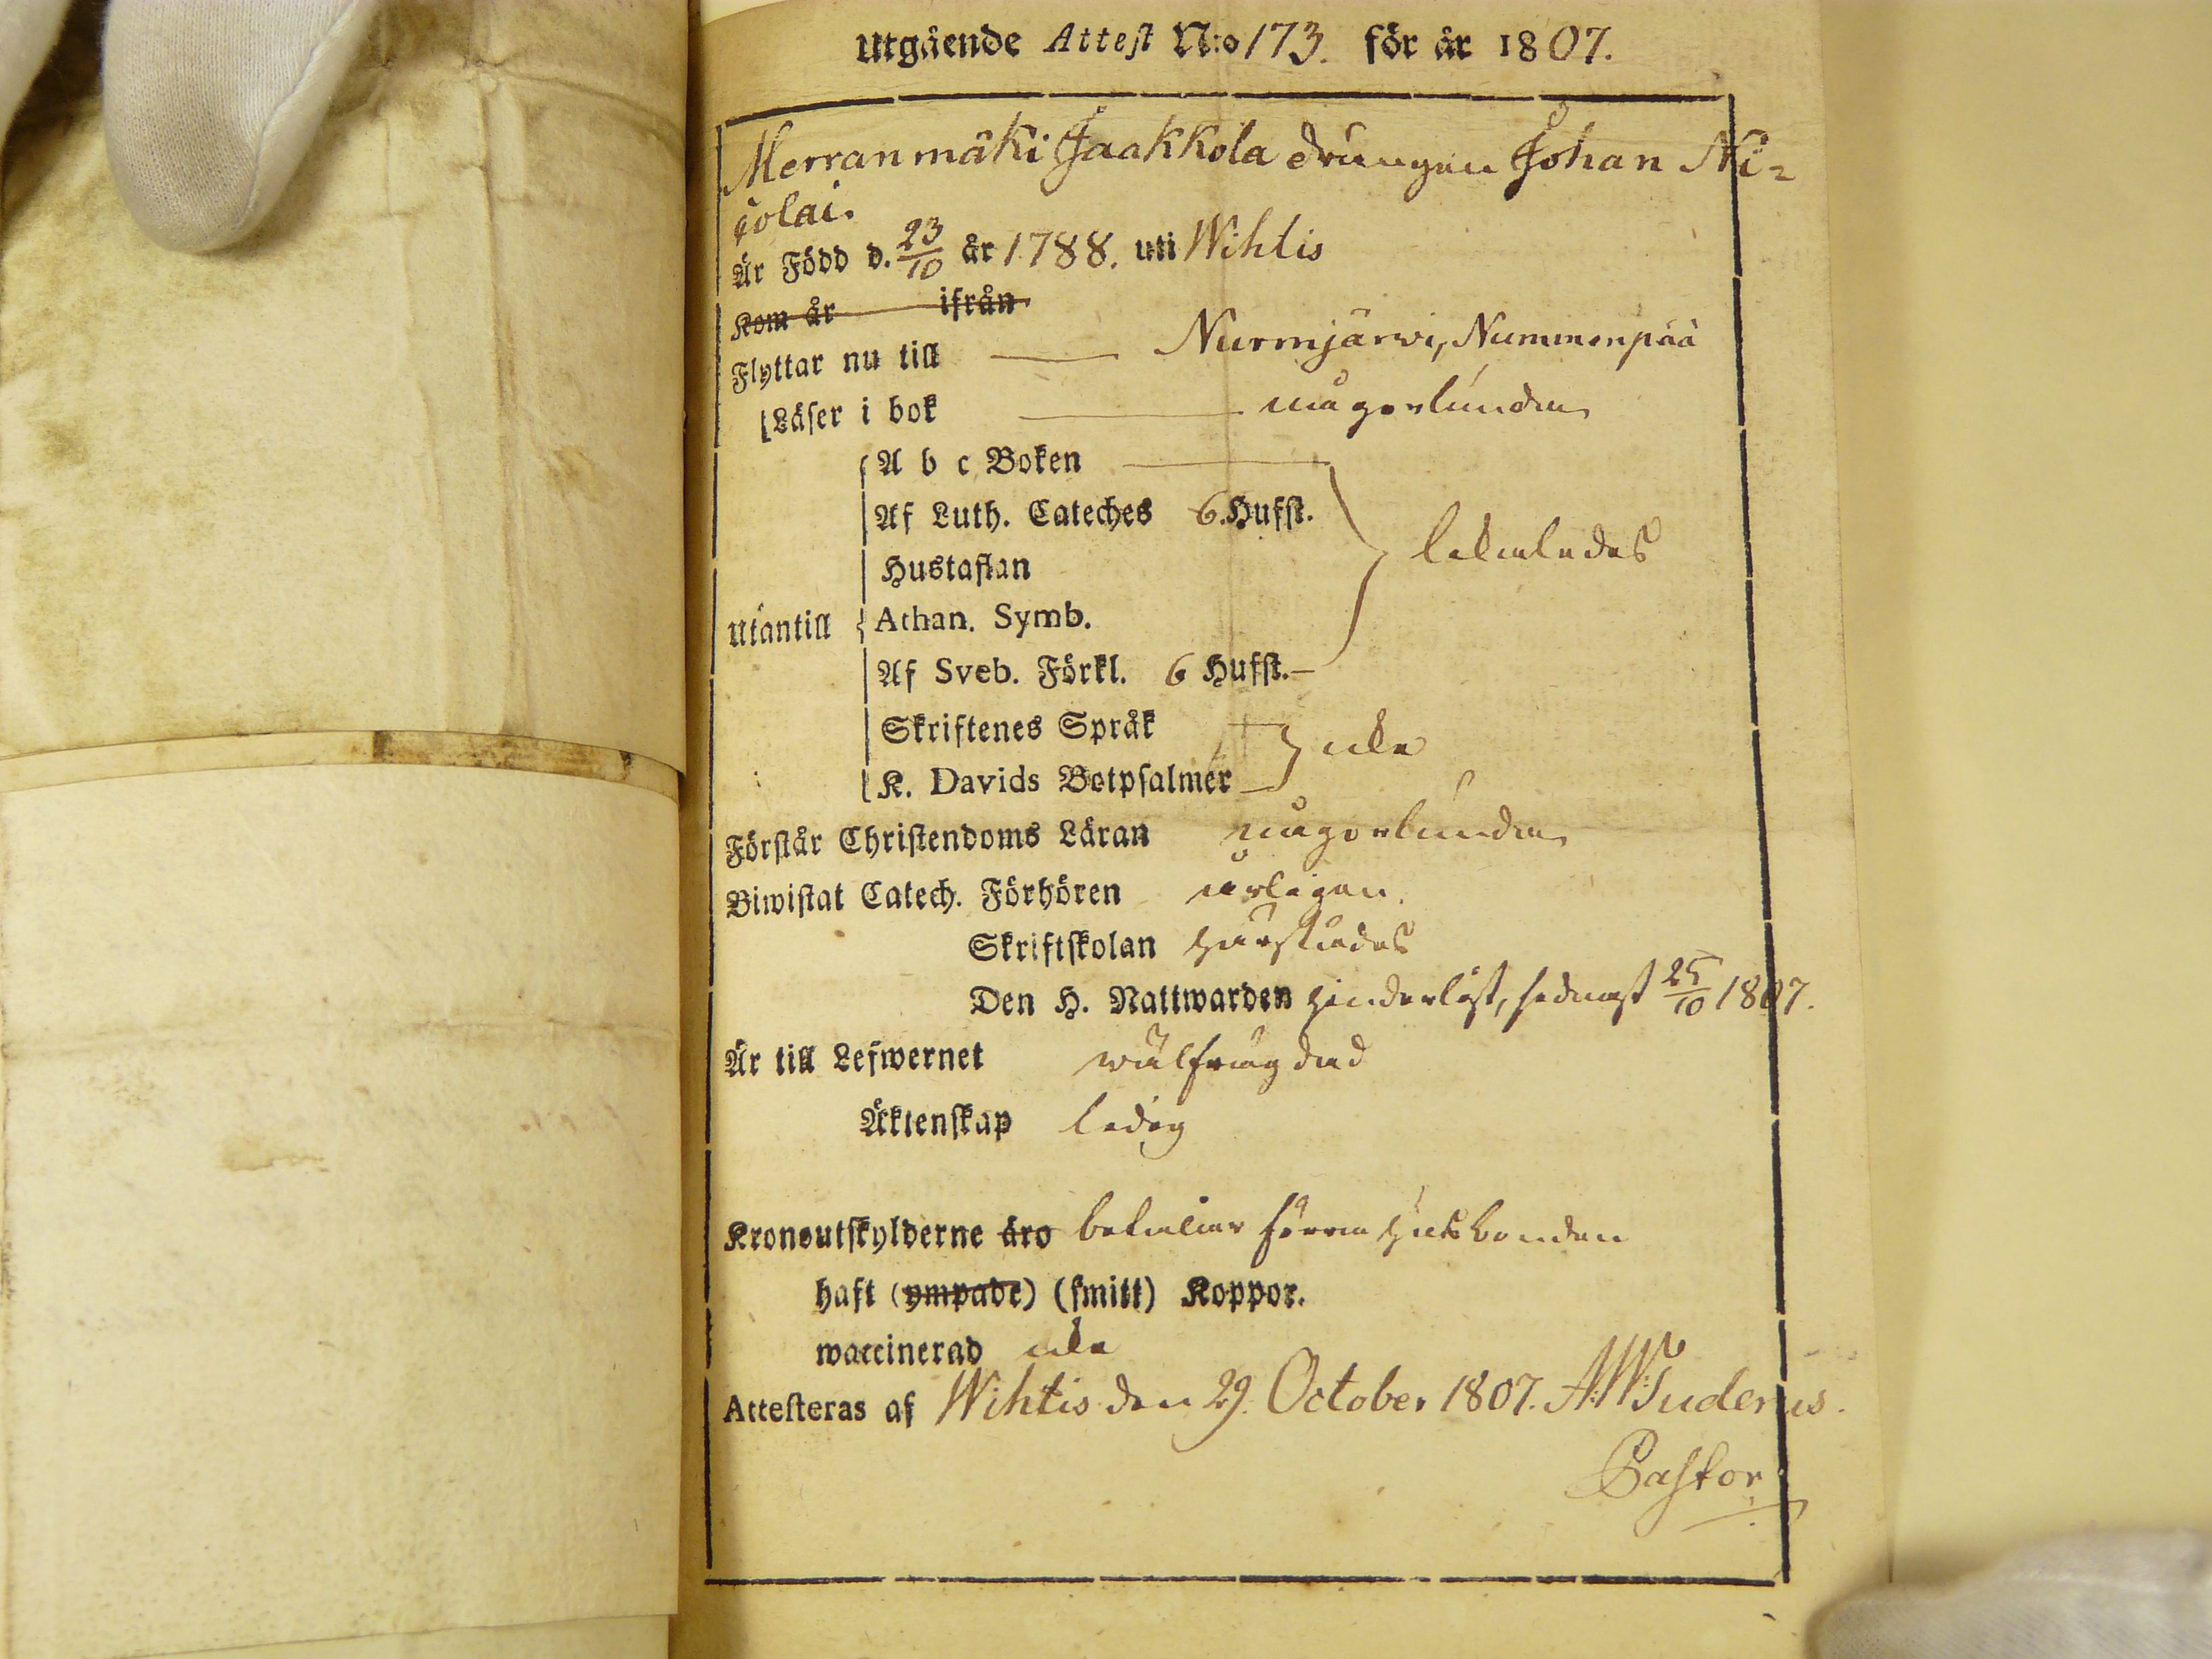 Utgående Attest N:o 173. för år 1807.
Merranmäki Jaakkola drängen Johan Ni=
colai.
Är Född d. 23/10 år 1788. uti Wihtis
Kom år ifrån
Flyttar nu till Nurmjärwi, Nummenpää
Läser i bok någorlunda
A b c Boken
Af Luth. Cateches 6. Hufst.
Hustaflan likaledes
Utantill Athan. Symb.
Af Sveb. Förkl. 6 Hufst.
Skriftenes Språk
K. Davids Botpsalmer icke
Förstår Christendoms Läran någorlunda
Biwistat Catech. Förhören årligen.
Skriftskolan härstädes
Den H. Nattwarden hinderlöst, sednast 25/10 1807.
Är till Lefwernet wälfrägdad
Äktenskap ledig
Kronoutskylderne äro betalar förra husbonden
haft (ympade) (smitt) Koppor.
waccinerad icke
Attesteras af Wihtis den 29. October 1807. A:W: Tuderus.
Pastor